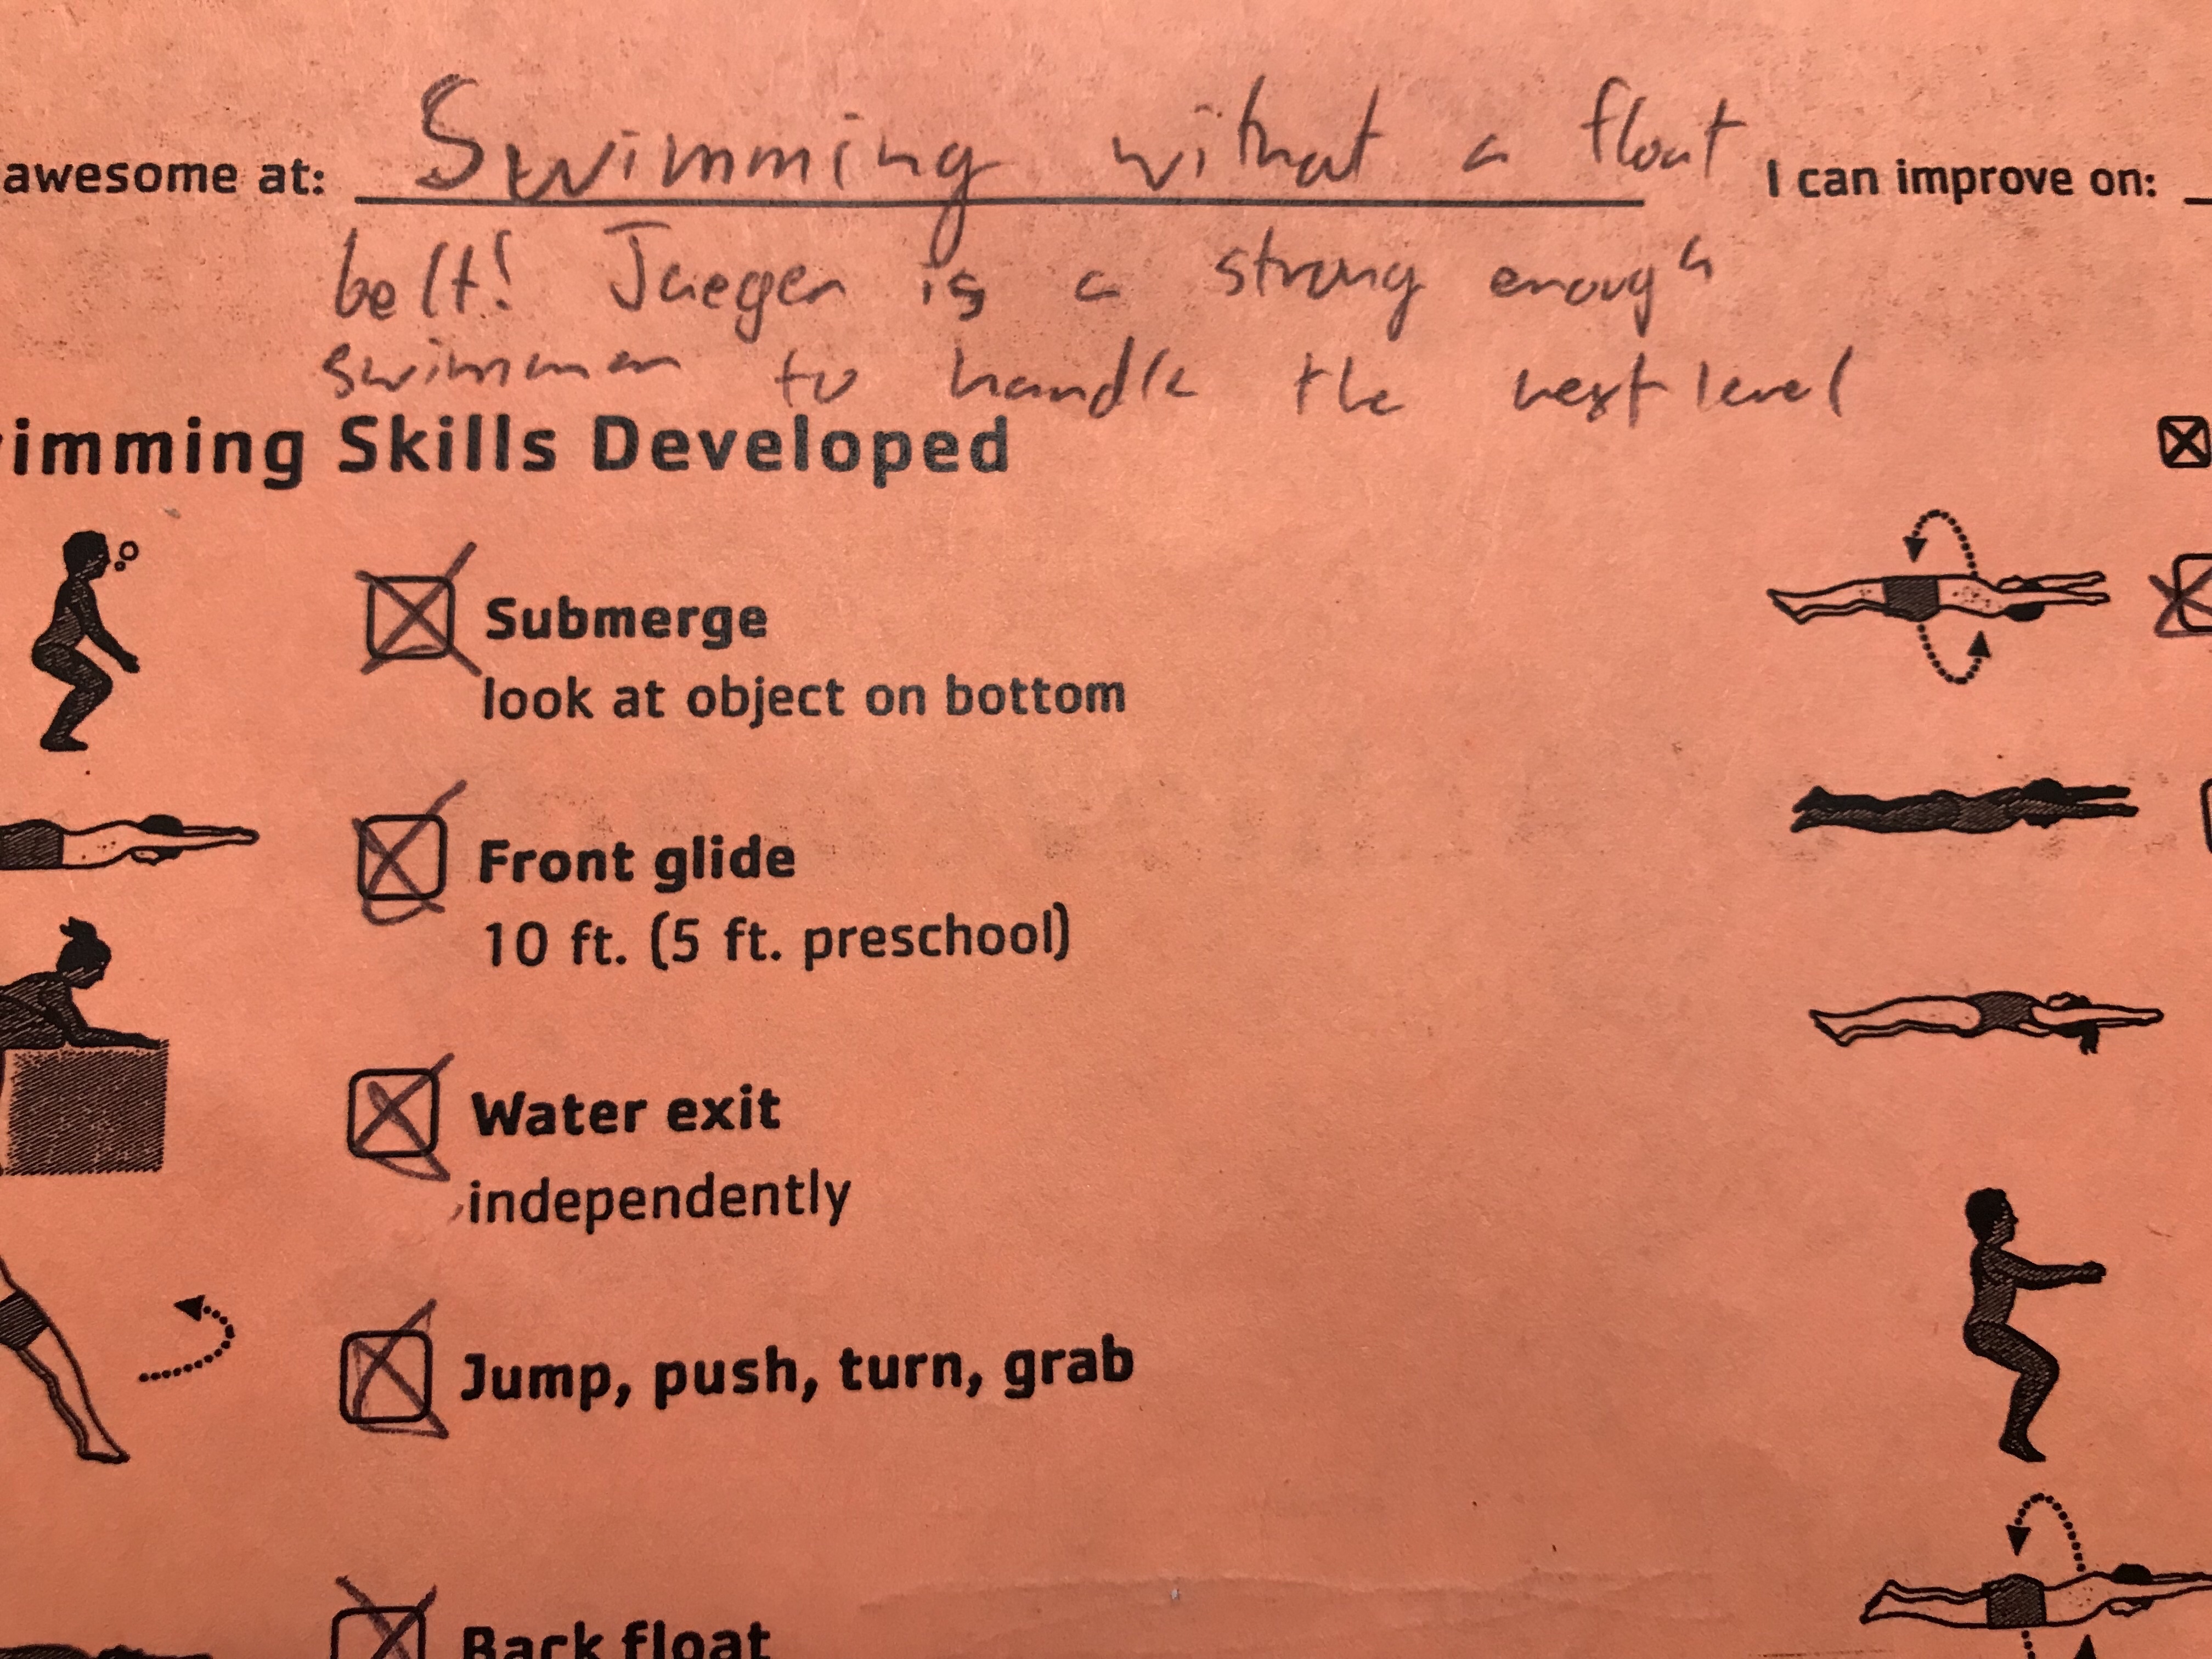 awesome at: Swimming without a float I can improve on:
belt! Jaeger is a strong enough
swimmer to handle the next level
imming Skills Developed
Submerge
look at object on bottom
Front glide
10 ft. (5 ft. preschool)
Water exit
independently
Jump, push, turn, grab
Back float